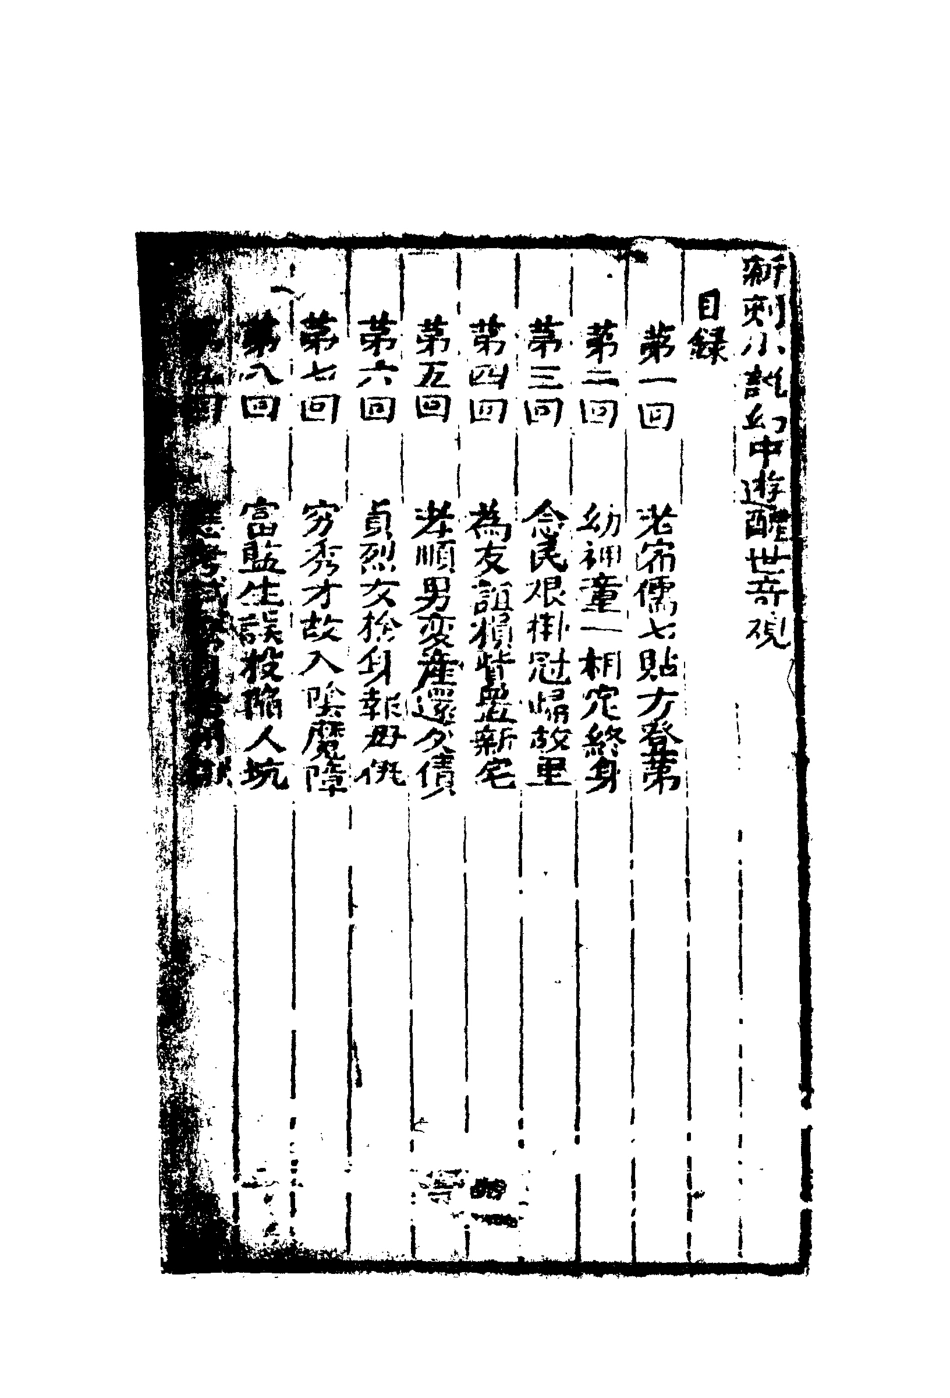 新刻小說幻中遊醒世奇觀
目録
第一回 老宿儒七貼方登第
第二回 幼神童一相定終身
第三回 念民艰掛冠帰故里
第四回 為友誼損貲置新宅
第五回 孝順男変產還父債
第六回 貞烈女捨身報母仇
第七回 穷秀才故入陰魔障
第八回 富監生誤投陷人坑
第九回 應考試